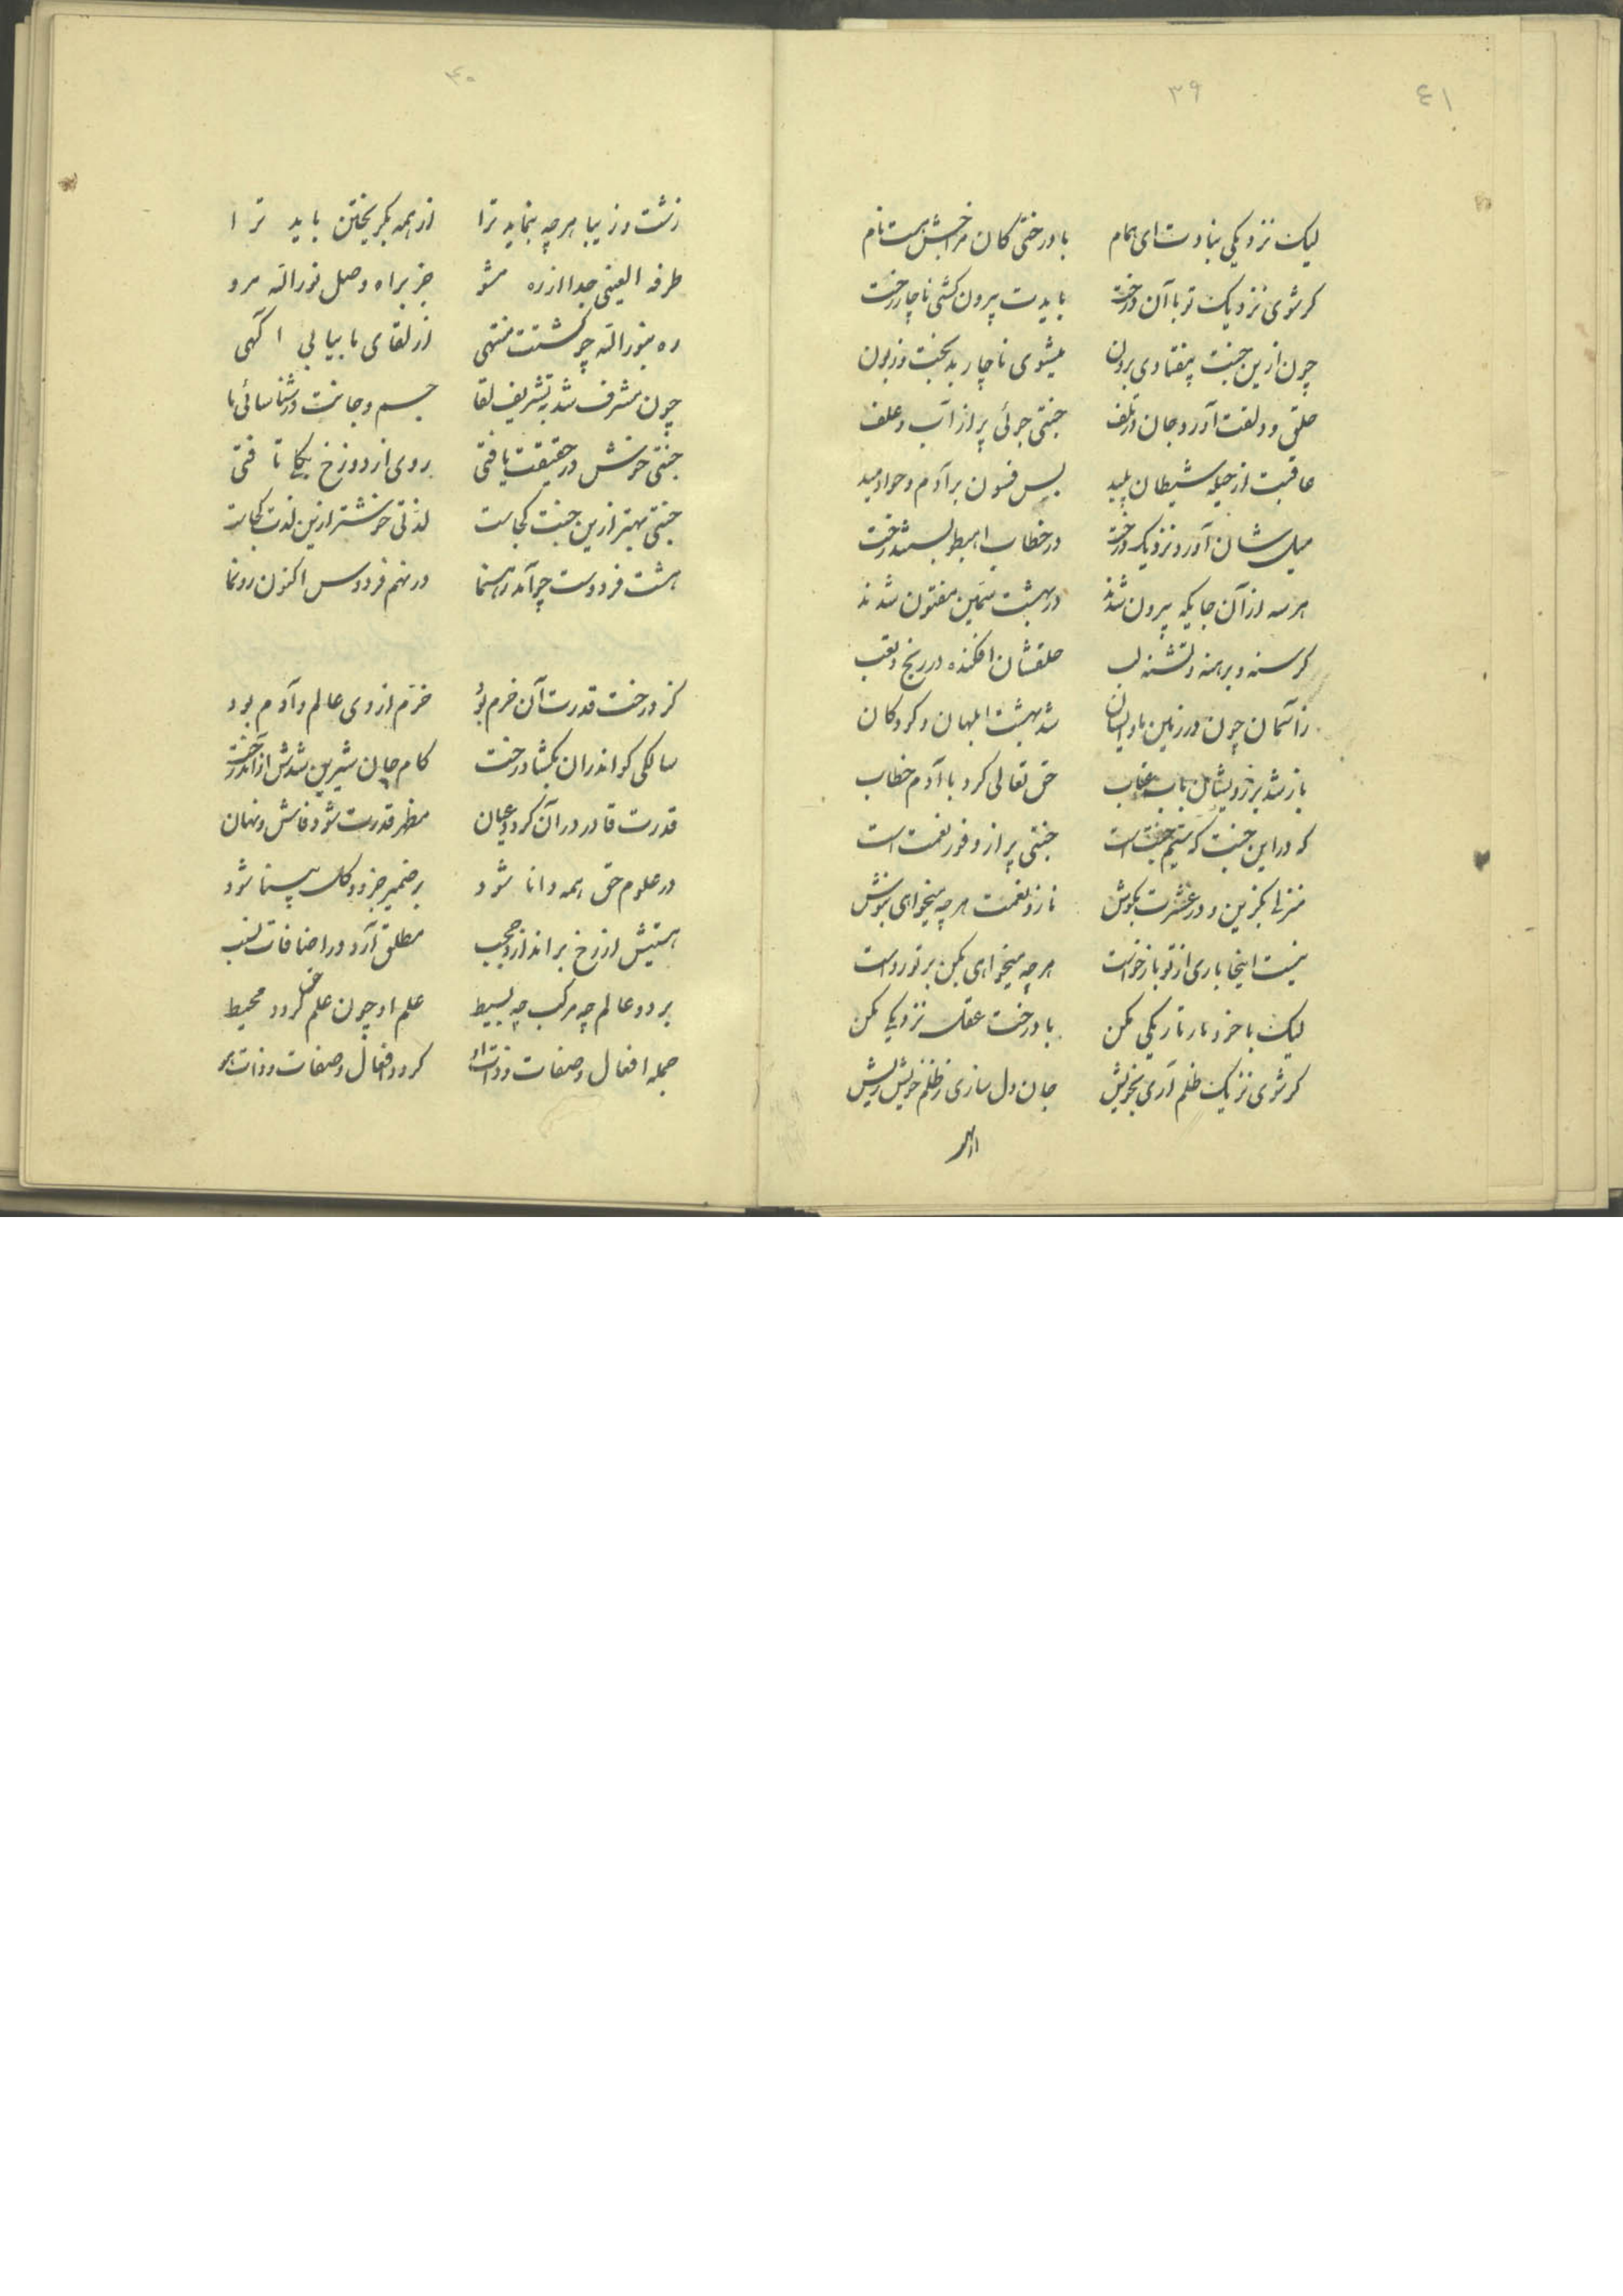 ۴۱
۳۹
لیک نزدیکی نبادت ای همام با درختی کان مر
کرشوی نزدیک تو با آن درخت بایدت بیرون کشی ناچار رخت
چون ازین جنت بیفتادی برون میشوی ناچار بدبخت و زبون
حلق و دلقت آورد جان در تلف جنتی جوئی پر از آب و علف
عاقبت از حیله شیطان پلید بس فسون بر آدم و حوا دمید
میل شان آورد نزدیک درخت در خطاب اهبطو بستند رخت
هر سه از آن جایکه بیرون شدند در بهشت مفتون شدند
کرسنه و برهنه و تشنه لب حلقشان افکنده در رنج و تعب
زآسمان چون در زمین شد بهشت ابلهان و کودکان
باز شد بر حق تعالی کرد با آدم خطاب
که در این جنت که جنتی پر از وفور نعمت است
منزل بکزین و در عشرت بکوش ناز و نعمت هر چه میخواهی بنوش
نیست اینجا باری از تو بازخواست هر چه میخواهی بکن بر تو رواست
لیک با خود نار تاریکی مکن با درخت عقل نزدیکی مکن
کرشوی نزدیک ظلم آری بخویش جان و دل سازی ز ظلم خویش ریش
۴۰
زشت و زیبا هر چه بنماید ترا از همه بکریختن باید ترا
طرفه العینی جدا از ره مشو جز براه وصل نور الله مرو
ره بنور الله چو کشتت منتهی از لقای ما بیابی اکهی
چون مشرف شد بتشریف لقا جسم و جانت در شناسائی ما
جنتی خوش در حقیقت یافتی روی از دوزخ بکل تافتی
جنتی بهتر ازین جنت کجاست لذتی خوشتر ازین لذت کجاست
هشت فردوست چو آمد رهنما در نهم فردوس اکنون رونما
کز درخت قدرت آن خرم بود خرم از وی عالم و آدم بود
سالکی کو اندران بکشاد رخت کام جان شیرین شدش از آن درخت
قدرت قادر در آن کردد عیان مظهر قدرت شود فاش و نهان
در علوم حق همه دانا شود بر ضمیر جزو و کل بینا شود
هستیش از رخ براندازد حجب مطلق آرد در اضافات نسب
بر دو عالم چه مرکب چه بسیط علم او چون علم حق کردد محیط
جمله افعال و صفات و ذات او کردد افعال و صفات و ذات هو